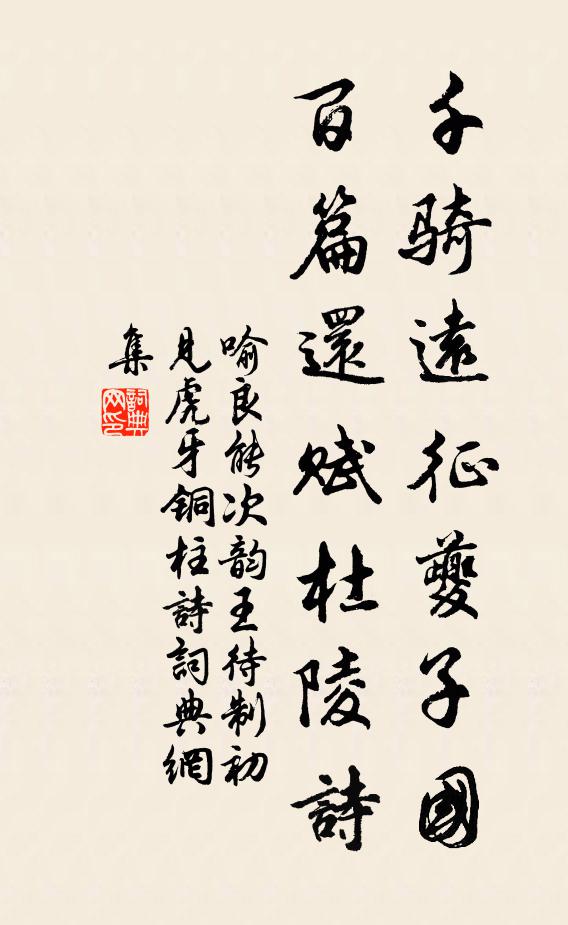 千騎遠征夔子國
百篇還賦杜陵詩
喻良能次韵王待制初
見虎牙銅柱詩詞典網
集
詞典网印